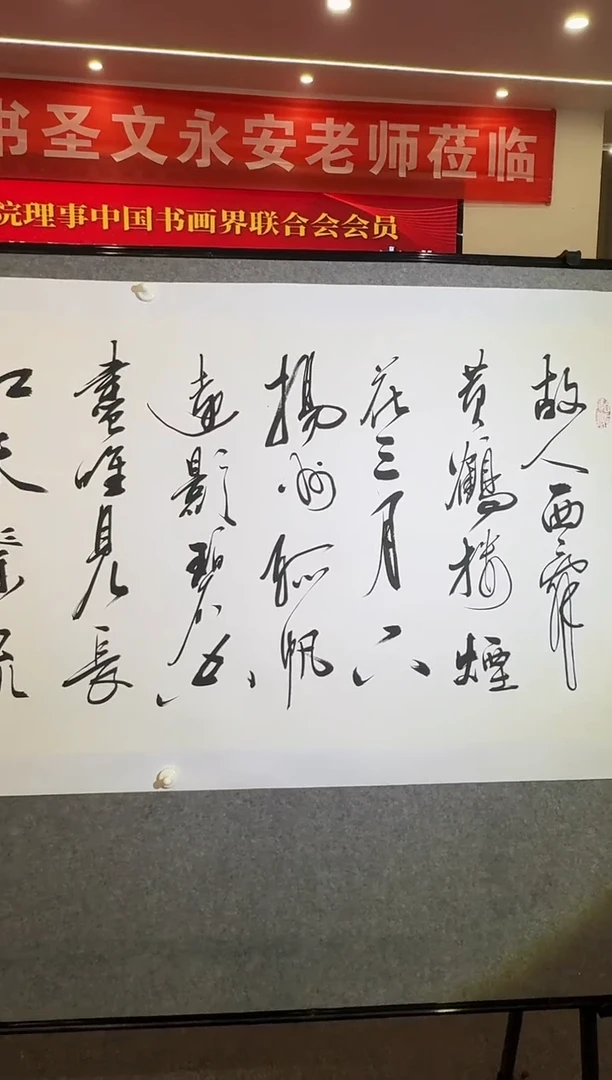 书圣文永安老师莅临
院理事中国书画界联合会会员
故人西辭
黄鶴樓煙
花三月下
揚州孤帆
遠影碧空
盡唯見長
江天際流